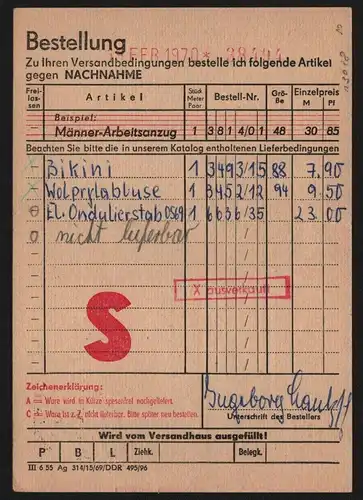 Bestellung
FEB 1970* 38494
Zu Ihren Versandbedingungen bestelle ich folgende Artikel
gegen NACHNAHME
Frei- lassen Artikel Stück Meter Paar Bestell-Nr. Grö- ße Einzelpreis M Pf
Beispiel:
Männer-Arbeitsanzug 1 3 8 1 4/0 1 48 30 85
Beachten Sie bitte die in unserem Katalog enthaltenen Lieferbedingungen
Bikini 1 3493/15 88 7.90
1 3452/12 94 9.50
El. Ondulierstab 0569 1 6636/35 23.00
nicht lieferbar
X ausverkauft
S
Zeichenerklärung:
A = Ware wird in Kürze spesenfrei nachgeliefert.
C = Ware ist z. Z. nicht lieferbar. Bitte später neu bestellen.
Ingeborg
Unterschrift des Bestellers
Wird vom Versandhaus ausgefüllt!
P B L Ziehk. Belegk.
III 6 55 Ag 314/15/69/DDR 495/96